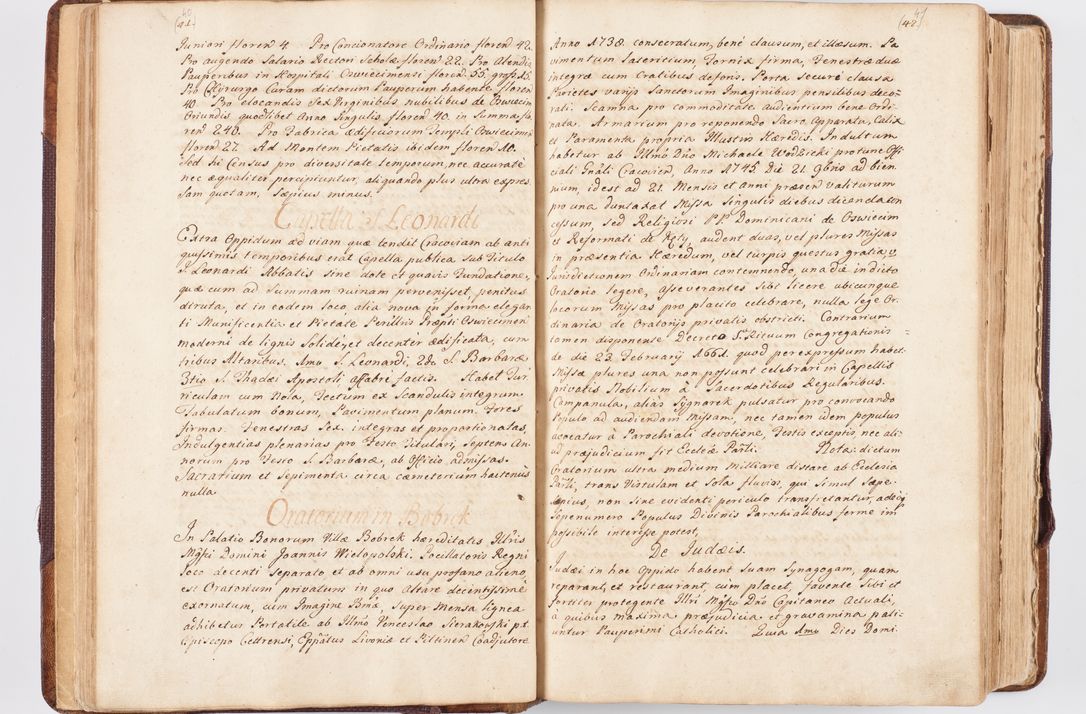 40
(41
Juniori floren 4. Pro Concionatore Ordinario floren 42.
Pro augendo Salario Rectori Scholæ floren 22. Pro Alendis
Pauperibus in Hospitali Oswiecimensi floren 55. gross 15.
Pro Chyrurgo Curam dictorum Pauperum habente floren
40. Pro elocandis Sex Virginibus nubilibus de Oswiecim
Oriundis quodlibet Anno Singulis floren 40. in Summa flo
ren 240. Pro Fabrica ædificiorum Templi Oswiecimen
floren 27. Ad Montem Pietatis ibidem floren 10.
Sed hi Census pro diversitate temporum, nec accuratè
nec æqualiter percipiuntur, aliquando plus ultra expres
sam quotam, Sæpius minus.
Capella S. Leonardi
Extra Oppidum ad viam quæ tendit Cracoviam ab anti
quissimis temporibus erat Capella publica sub Titulo
S. Leonardi Abbatis sine dote et quavis Fundatione,
quæ cum ad Summam ruinam pervenisset, penitus
diruta, et in eodem loco, alia nova in forma elegan
ti Munificentia et Pietate Perillris Præpti Oswiecimen
moderni de lignis Solidè, et decenter ædificata, cum
tribus Altaribus. Imo S. Leonardi, 2do S. Barbaræ
3tio S. Thadæi Apostoli affabre factis. Habet Tur
riculam cum Nola, Tectum ex Scandulis integrum
Tabulatum bonum, Pavimentum planum. Fores
firmas. Fenestras Sex integras et proportionatas,
Indulgentias plenarias pro Festo Titulari, Septem An
norum pro Festo S. Barbaræ, ab Officio admissas.
Sacrarium et Sepimenta circa cæmeterium hactenus
nulla
Oratorium in Bobrek
In Palatio Bonorum Villæ Bobrek hæreditatis Illris
Mgfci Domini Joannis Wielopolski Pocillatoris Regni
loco decenti separato et ab omni usu profano alieno,
est Oratorium privatum in quo Altare decentissime
exornatum, cum Imagine Bmæ, super mensa lignea
adhibetur Portatile ab Illmo Venceslao Sierakowski p.t.
Episcopo Cestrensi, Eppatus Livoniæ et Piltinen Coadjutore
41
(42
Anno 1738. consecratum, bené clausum, et illæsum. Pa
vimentum Latericium, Fornix firma, Fenestræ duæ
integræ cum Cratibus de foris. Porta securé clausa
Parietes varijs Sanctorum Imaginibus pensilibus deco
rati. Scamna pro commoditate audientium bene Ordi
nata. Armarium pro reponendo Sacro Apparatu, Calix
et Paramenta propria Illustris Hæredis. Indultum
habetur ab Illmo Dno Michaele Wodzicki pro tunc Offi
ciali Gnali Cracovien, Anno 1745. Die 21. 9bris ad bien
nium, id est ad 21. Mensis et anni præsen valiturum
pro una duntaxat Missa singulis diebus dicenda con
cessum, Sed Religiosi PP. Dominicani de Oswiecim
et Reformati de Kęty, audent duas, vel plures Missas
in præsentia Hæredum, vel turpis quæstus gratia, et
Jurisdictionem Ordinariam contemnendo, una die in dicto
Oratorio legere, asseverantes sibi licere ubicunque
locorum Missas pro placito celebrare, nulla lege Or
dinaria de Oratorijs privatis obstricti. Contrarium
tamen disponente Decreto S. Rituum Congregationis
de die 23. Februarij 1661. quod per expressum habet.
Missæ plures una non possunt celebrari in Capellis
privatis Nobilium à Sacerdotibus Regularibus.
Campanula, alias Sygnarek pulsatur pro convocando
Populo ad audiendam Missam, nec tamen idem populus
avocatur à Parochiali devotione, Festis exceptis, nec ali
ud præjudicium fit Ecclæ Parli. Nota: dictum
Oratorium ultra medium Milliare distare ab Ecclesia
Parli, trans Vistulam et Sola fluvios, qui Simul Sæpe
numero, non sine evidenti periculo transfretantur, adeoq
Sæpenumero Populus Divinis Parochialibus fermè im
possibile interesse potest,
De Judæis.
Judæi in hoc Oppido habent Suam Synagogam, quam
reparant, et restaurant, cum placet, favente Sibi et
fortiter protegente Illri Mgfco Dno Capitaneo Actuali,
à quibus maxima præjudicia et gravamina pati
untur Pauperimi Catholici. Quia Imo Dies Domi-